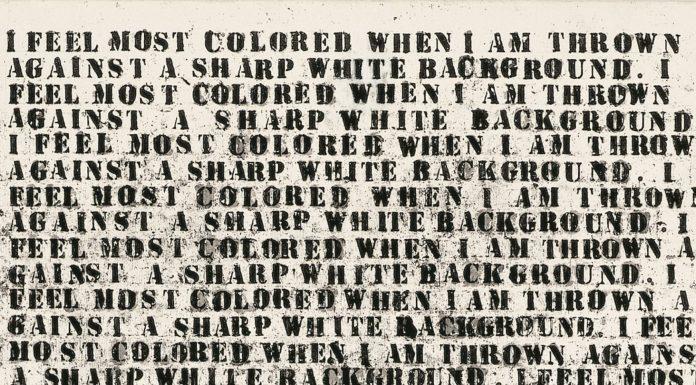 I FEEL MOST COLORED WHEN I AM THROWN
AGAINST A SHARP WHITE BACKGROUND. I
FEEL MOST COLORED WHEN I AM THROWN
AGAINST A SHARP WHITE BACKGROUND
I FEEL MOST COLORED WHEN I AM THROW
AGAINST A SHARP WHITE BACKGROUND. I
FEEL MOST COLORED WHEN I AM THROWN
AGAINST A SHARP WHITE BACKGROUND. I
FEEL MOST COLORED WHEN I AM THROWN A
GAINST A SHARP WHITE BACKGROUND. I
FEEL MOST COLORED WHEN I AM THROWN A
GAINST A SHARP WHITE BACKGROUND. I FEE
MOST COLORED WHEN I AM THROWN AGAINS
A SHARP WHITE BACKGROUND. I FEEL MOS